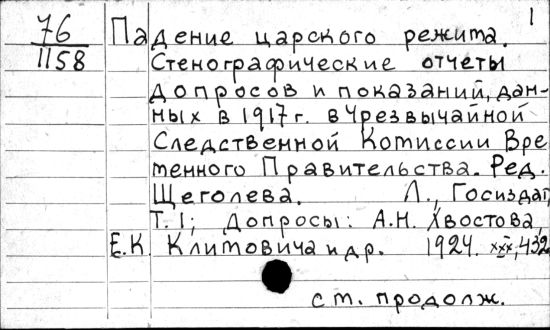 1
76 Падение царского режима.
1158 Стенографические отчеты
допросов и показаний, дан-
ных в 1917 г. в Чрезвычайной
Следственной Комиссии Вре
менного Правительства. Ред.
Щеголева. Л., Госиздат,
Т. I; Допросы: А.Н. Хвостова,
Е.К. Климовича и др. 1924. XXX, 432
см. продолж.